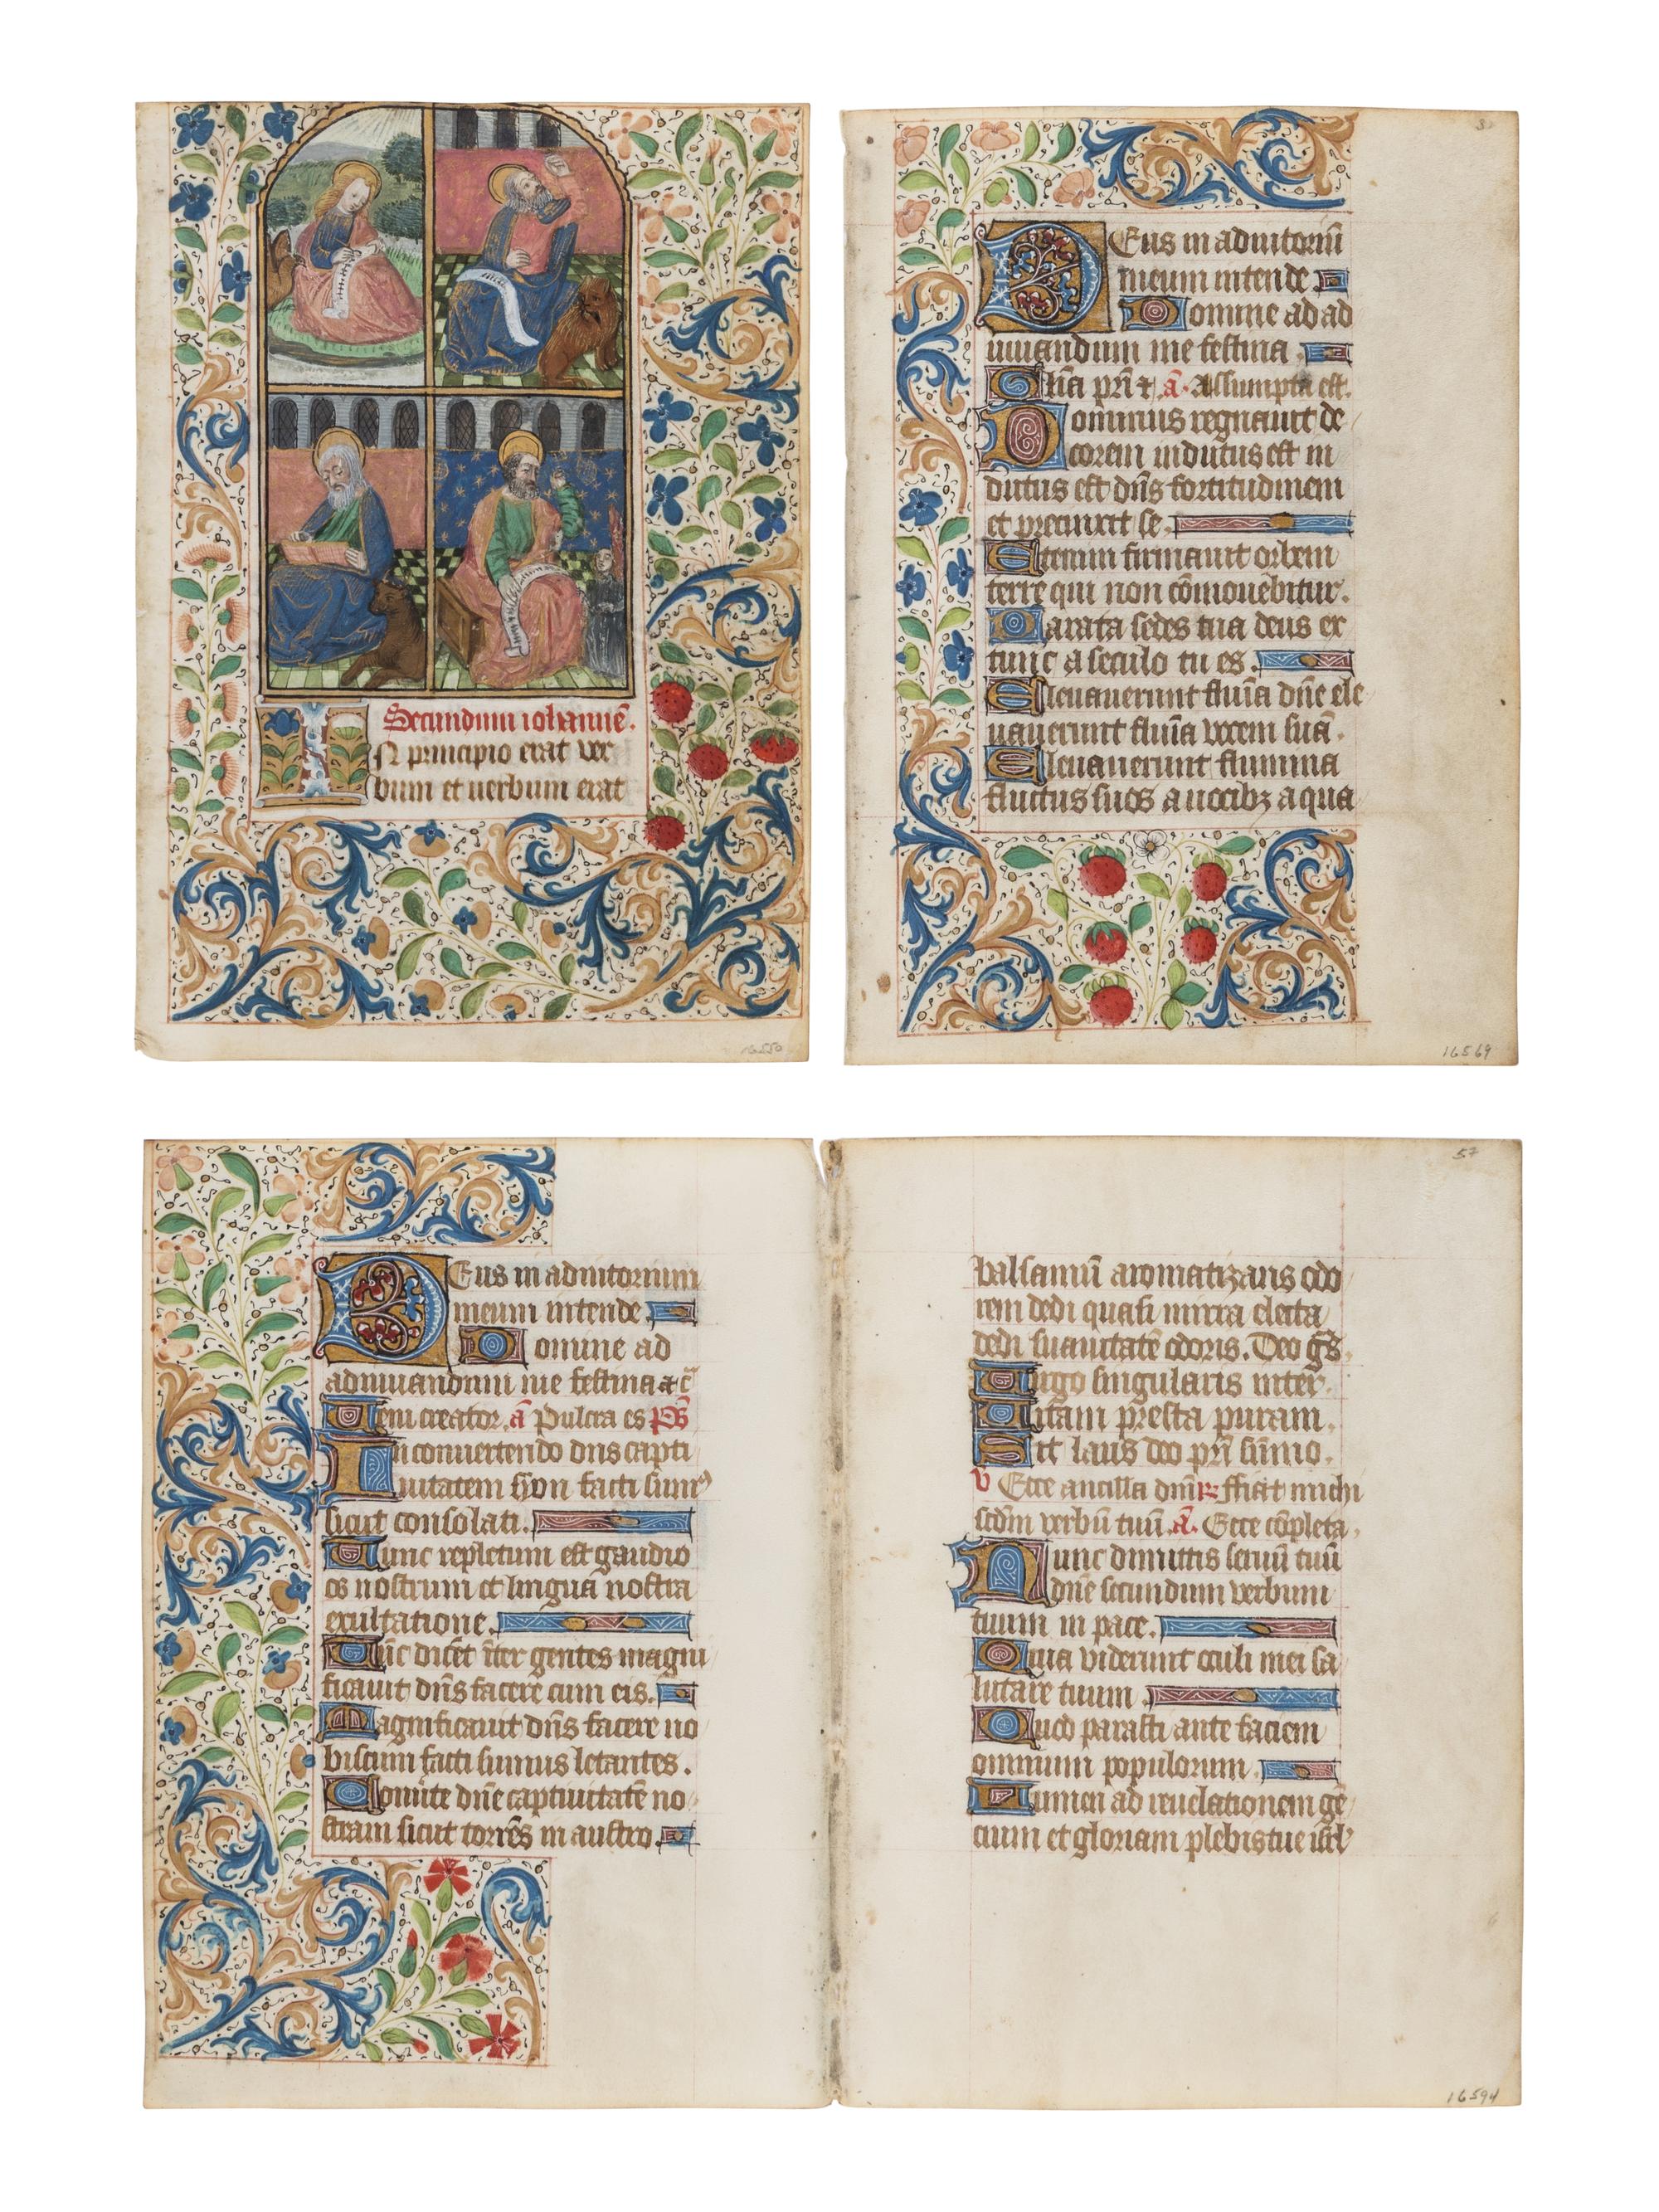 Secundum iohannē.
IN principio erat ver
bum et uerbum erat
16550
DEus in adiutoriū
meum intende
Domine ad ad
iuuandum me festina
Glīa pr̄i ⁊ ā. Assumpta est.
Dominus regnauit de
corem indutus est in
dutus est dn̄s fortitudinem
et precinxit se.
Etenim firmauit orbem
terre qui non cōmouebitur.
Parata sedes tua deus ex
tunc a seculo tu es.
Eleuauerunt fluīa dn̄e ele
uauerunt fluīa vocem suā.
Eleuauerunt flumina
fluctus suos a uocibꝫ aqua
16569
DEus in adiutorium
meum intende
Domine ad
adiuuandum me festina
Veni creator. ā Pulcra es Ps̄
In conuertendo dn̄s capti
uitatem syon facti sum⁹
sicut consolati.
Tunc repletum est gaudio
os nostrum et lingua nostra
exultatione.
Tūc dicēt īter gentes magni
ficauit dn̄s facere cum eis.
Magnificauit dn̄s facere no
biscum facti sumus letantes.
Conuīte dn̄e captiuitatē no
stram sicut torrēs in austro.
57
balsamū aromatizans odo
rem dedi quasi mirra electa
dedi suauitatē odoris. Deo gr̄s.
Uirgo singularis inter.
Uitam presta puram.
Sit laus deo pr̄i sūmo.
v Ecce ancilla dn̄i ℟ ffiat michi
scd̄m verbū tuū. ā. Ecce cōpleta.
Nunc dimittis seruū tuū
dn̄e secundum verbum
tuum in pace.
Quia viderunt oculi mei sa
lutare tuum.
Quod parasti ante faciem
omnium populorum.
Lumen ad reuelationem gē
cium et gloriam plebis tue isrl̄
16594